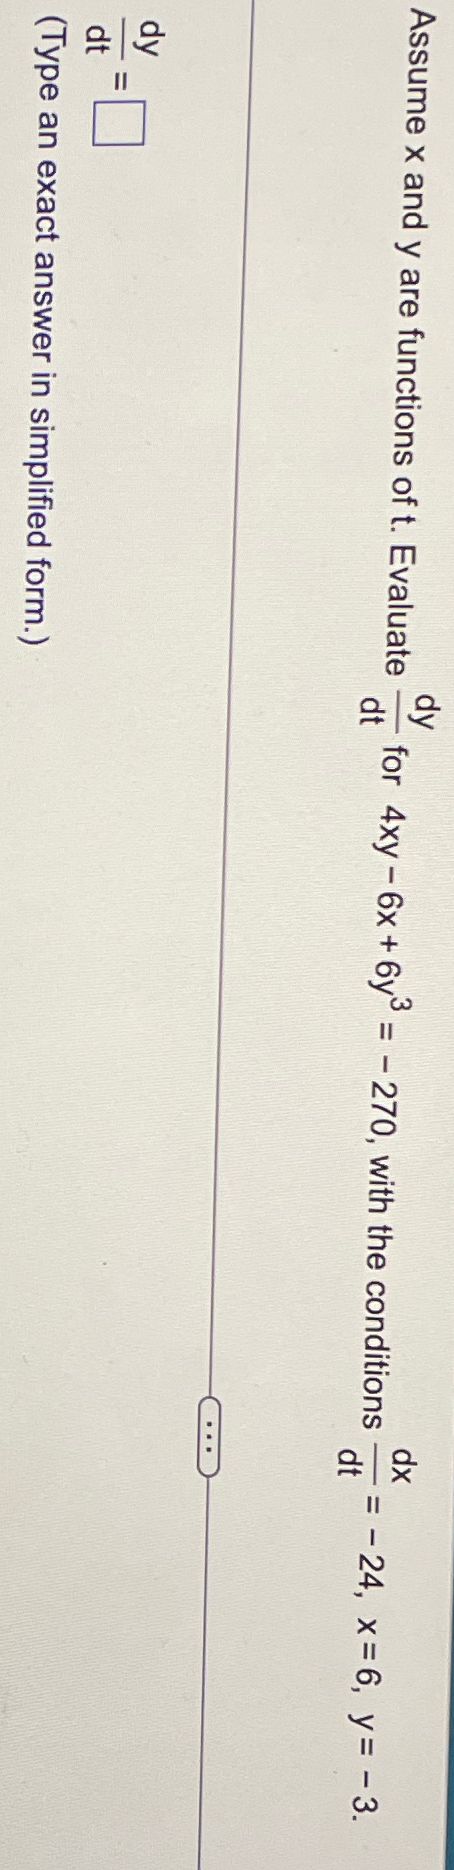 Assume x and y are functions of t. Evaluate dy/dt for 4xy − 6x + 6y³ = − 270, with the conditions dx/dt = − 24, x = 6, y = − 3.
...
dy/dt = □
(Type an exact answer in simplified form.)